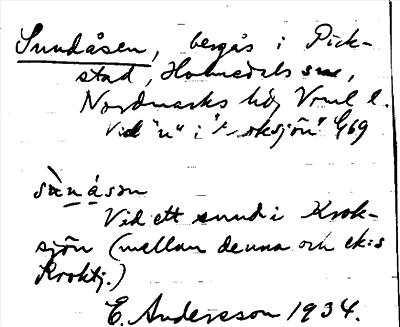 Sundåsen, bergås i Pick-
stad, Holmedals sn,
Nordmarks hd, Vrml l.
Vid "n" i "Kroksjön" G69
sànásən
Vid ett sund i Krok-
sjön (mellan denna och ek:s
Kroktj.)
E. Andersson 1934.